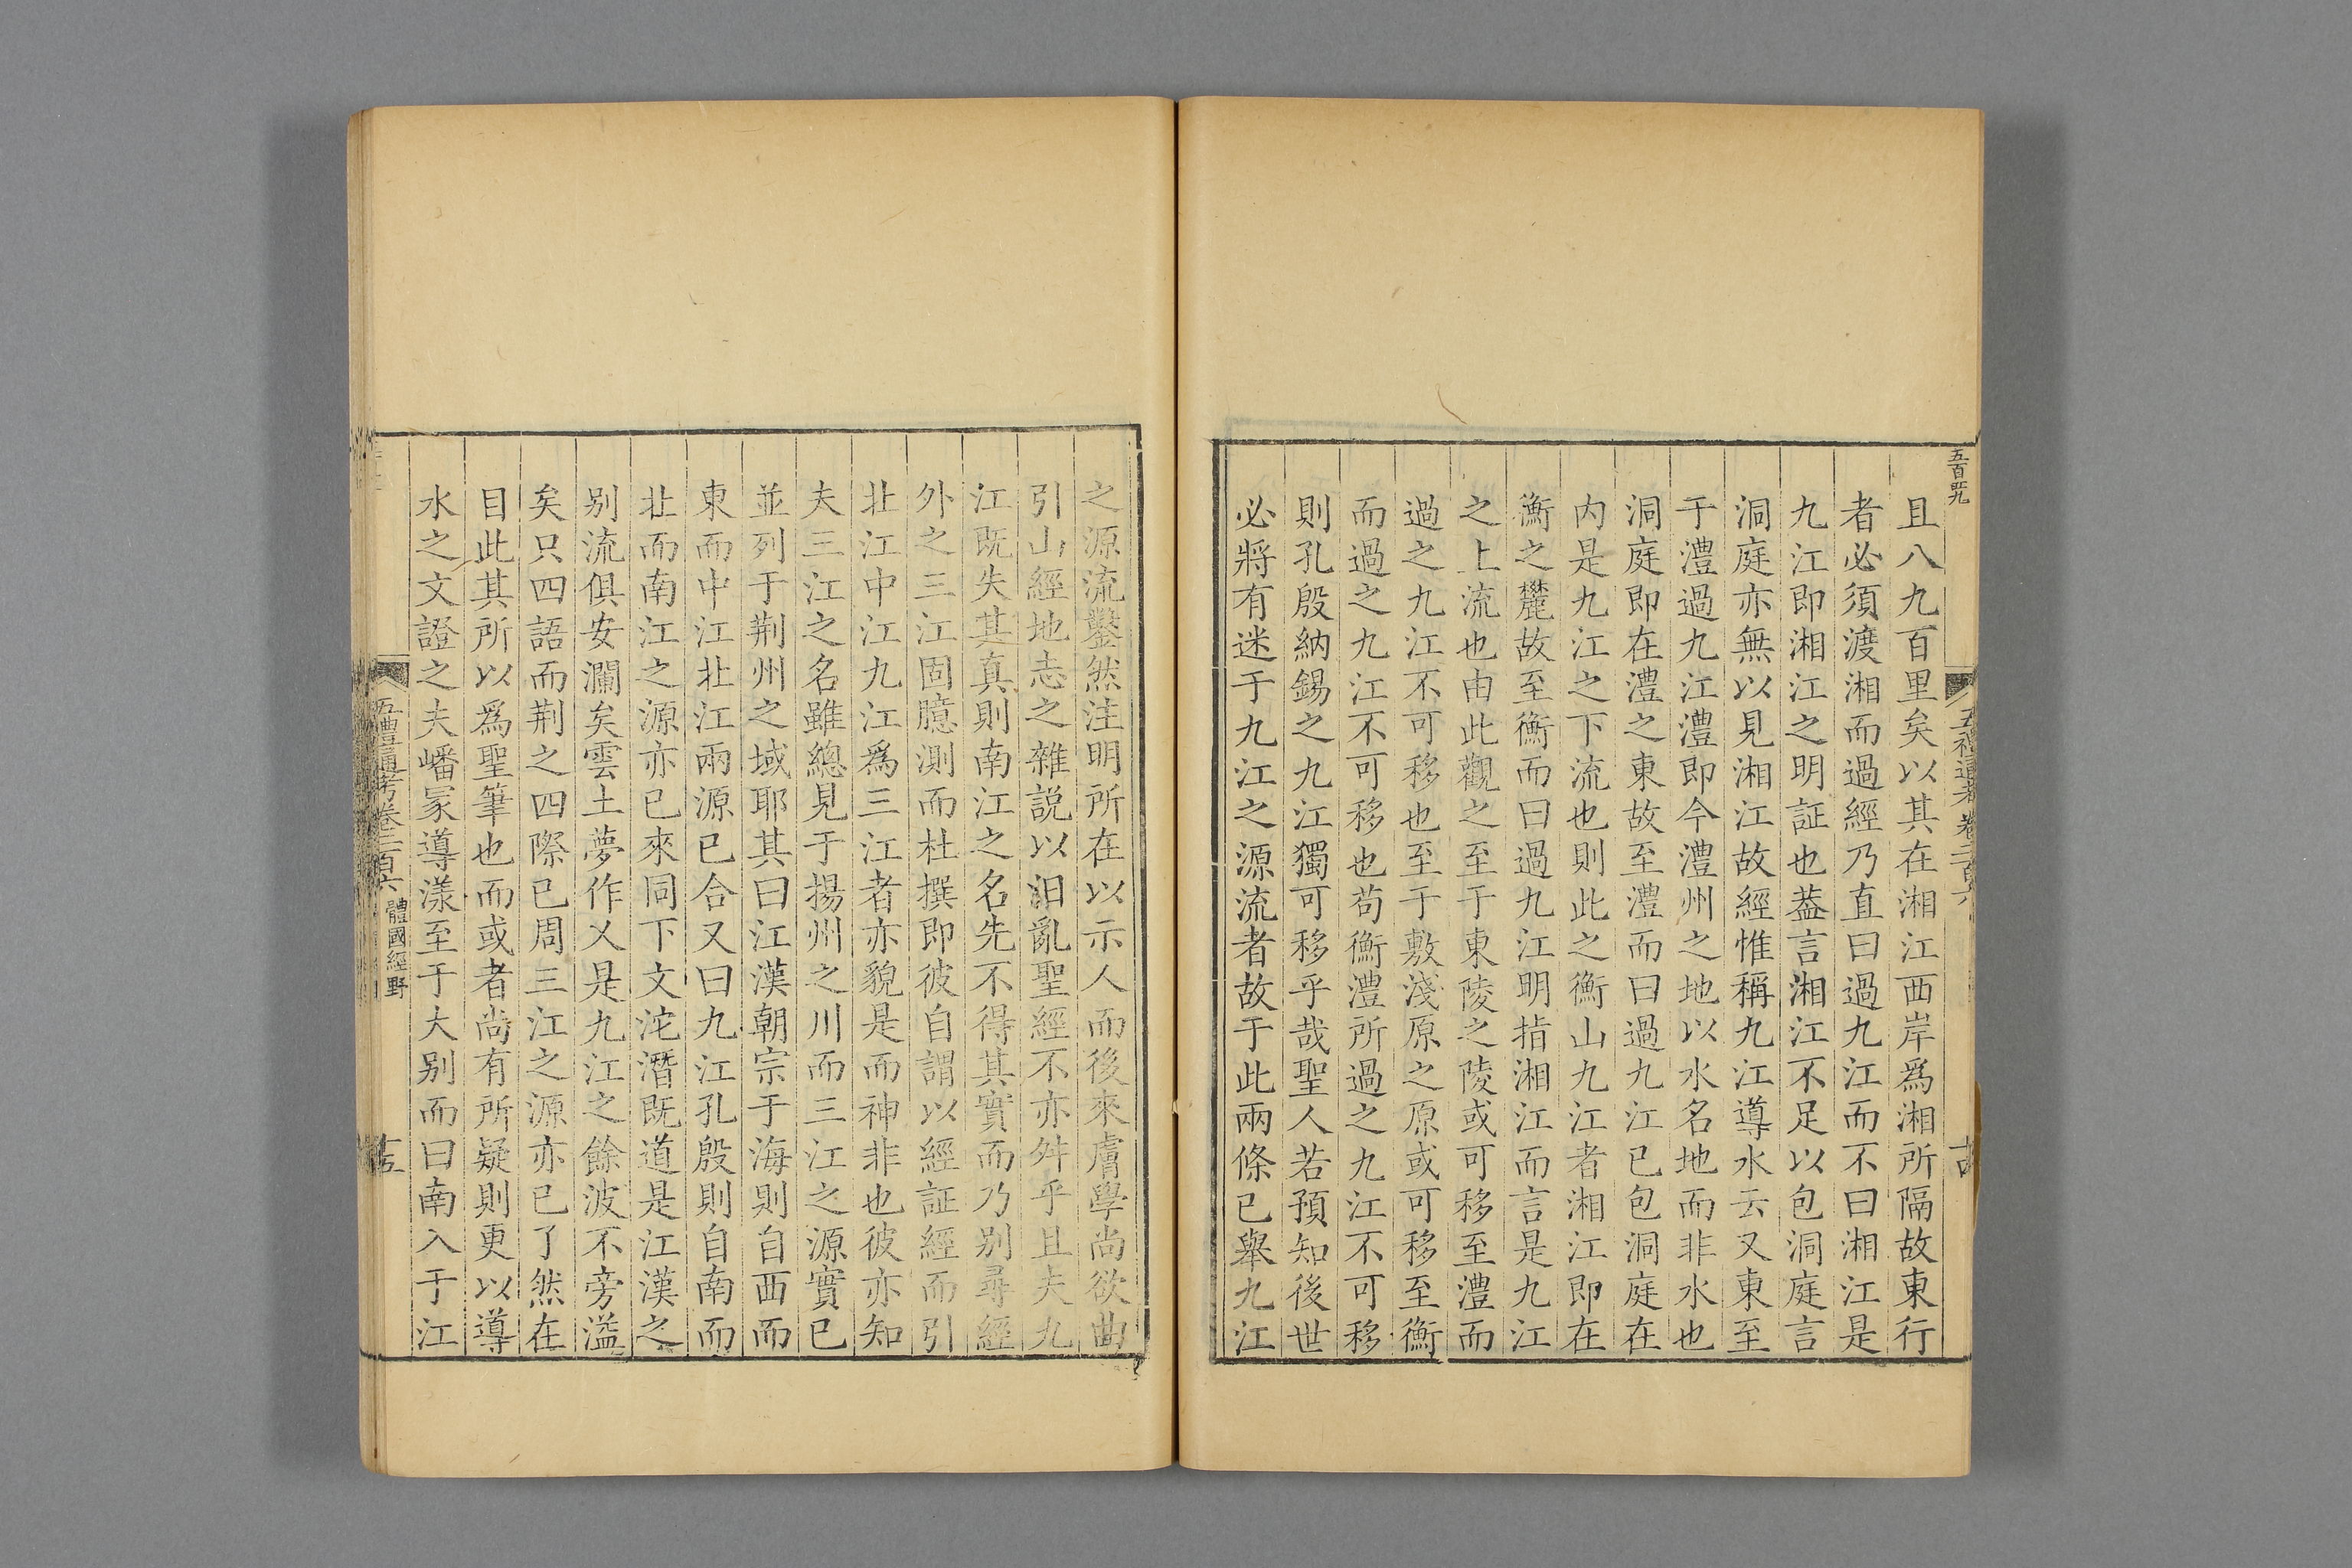 五百咒
五禮通考 卷二百六
且八九百里矣以其在湘江西岸爲湘所隔故東行
者必須渡湘而過經乃直曰過九江而不曰湘江是
九江即湘江之明証也葢言湘江不足以包洞庭言
洞庭亦無以見湘江故經惟稱九江導水云又東至
于澧過九江澧即今澧州之地以水名地而非水也
洞庭即在澧之東故至澧而曰過九江已包洞庭在
内是九江之下流也則此之衡山九江者湘江即在
衡之麓故至衡而曰過九江明指湘江而言是九江
之上流也由此觀之至于東陵之陵或可移至澧而
過之九江不可移也至于敷淺原之原或可移至衡
而過之九江不可移也苟衡澧所過之九江不可移
則孔殷納錫之九江獨可移乎哉聖人若預知後世
必將有迷于九江之源流者故于此兩條已舉九江
之源流鑿然注明所在以示人而後來膚學尚欲曲
引山經地志之雜説以汨亂聖經不亦舛乎且夫九
江既失其真則南江之名先不得其實而乃别尋經
外之三江固臆測而杜撰即彼自謂以經証經而引
北江中江九江爲三江者亦貌是而神非也彼亦知
夫三江之名雖總見于揚州之川而三江之源實已
並列于荆州之域耶其曰江漢朝宗于海則自西而
東而中江北江兩源已合又曰九江孔殷則自南而
北而南江之源亦已來同下文沱潛既道是江漢之
别流俱安瀾矣雲土夢作乂是九江之餘波不旁溢
矣只四語而荆之四際已周三江之源亦已了然在
目此其所以爲聖筆也而或者尚有所疑則更以導
水之文證之夫嶓冢導漾至于大别而曰南入于江
五禮通考卷二百六 體國經野